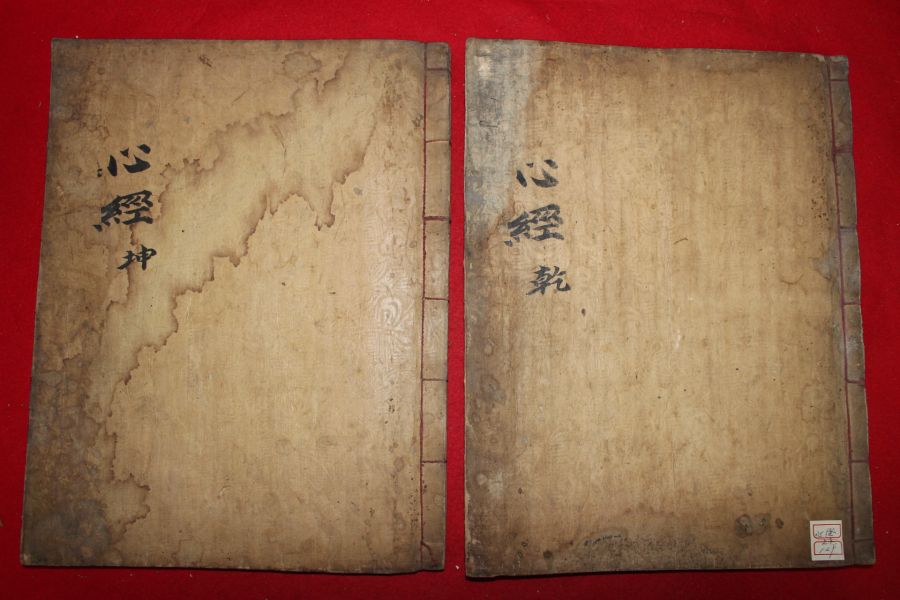 心經 坤
心經 乾